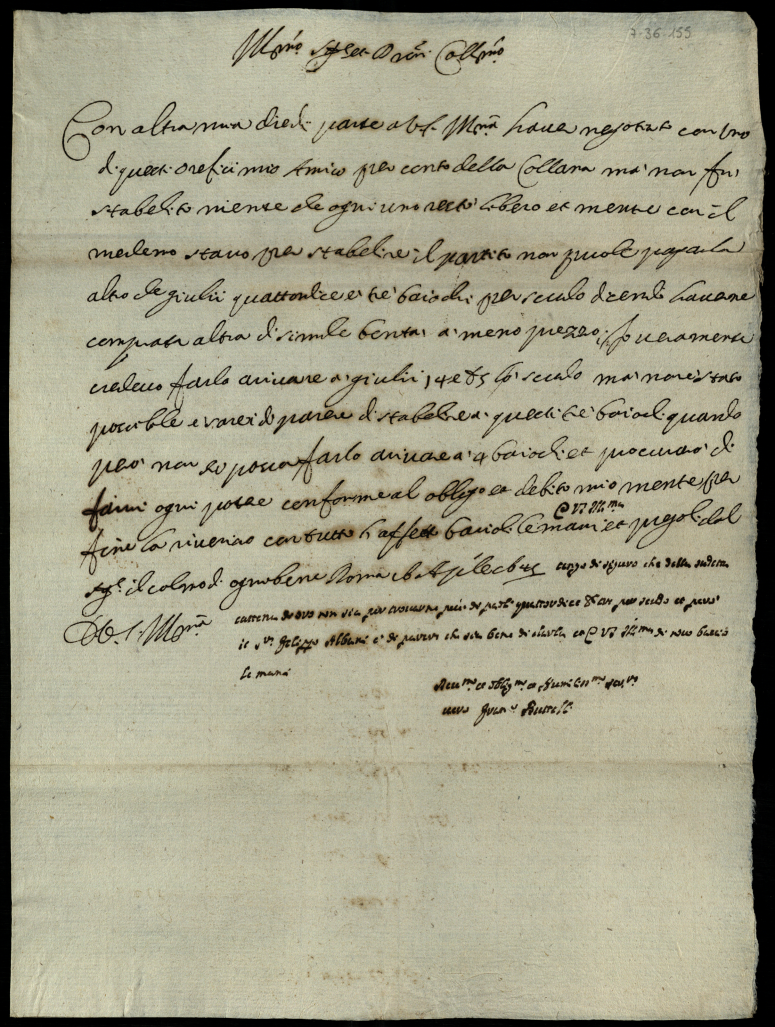 7-36-155
Ill.mo Sig.r et Pron Coll.mo
Con altra mia diedi parte a V.S. Ill.ma haver negotiato con uno
di questi orefici mio Amico per conto della Collana ma non fu
stabelito niente che ogni uno restò libero et mentre con il
medemo stavo per stabelire il partito non puole pagarla
altro che giulii quattordice e tre baiochi per scudo dicendo haverne
comprata altra di simile bontà a meno prezzo, io veramente
credevo farlo arivare a giulii 14 e b 5 lo scudo ma non è stato
possibile e sarei di parere di stabelire a questi tre baiochi quando
però non lo possa farlo arivare a 4 baiochi et procurarò di
farvi ogni potere conforme al obligo et debito mio mentre per
fine la riverirò con tutto l'affetto bacioli le mani et pregoli dal
à V.S. Ill.ma
Sig.e il colmo di ogni bene Roma li Aple
tengo di sicuro che della sudetta
D V. S. Ill.ma
cattena de oro non sia per cavarne più di paoli quattordici et per scudo et però
il s.r Filippo Albani è di parere che sia bene di darla et à V.S. Ill.ma di novo bacio
le mani
Dev.mo et oblig.mo et Humiliss.mo ser.re
vero Fran.co